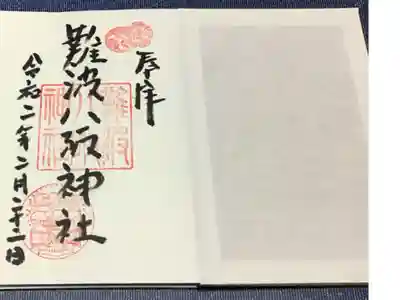 奉拝
難波八阪神社
令和二年二月二十二日